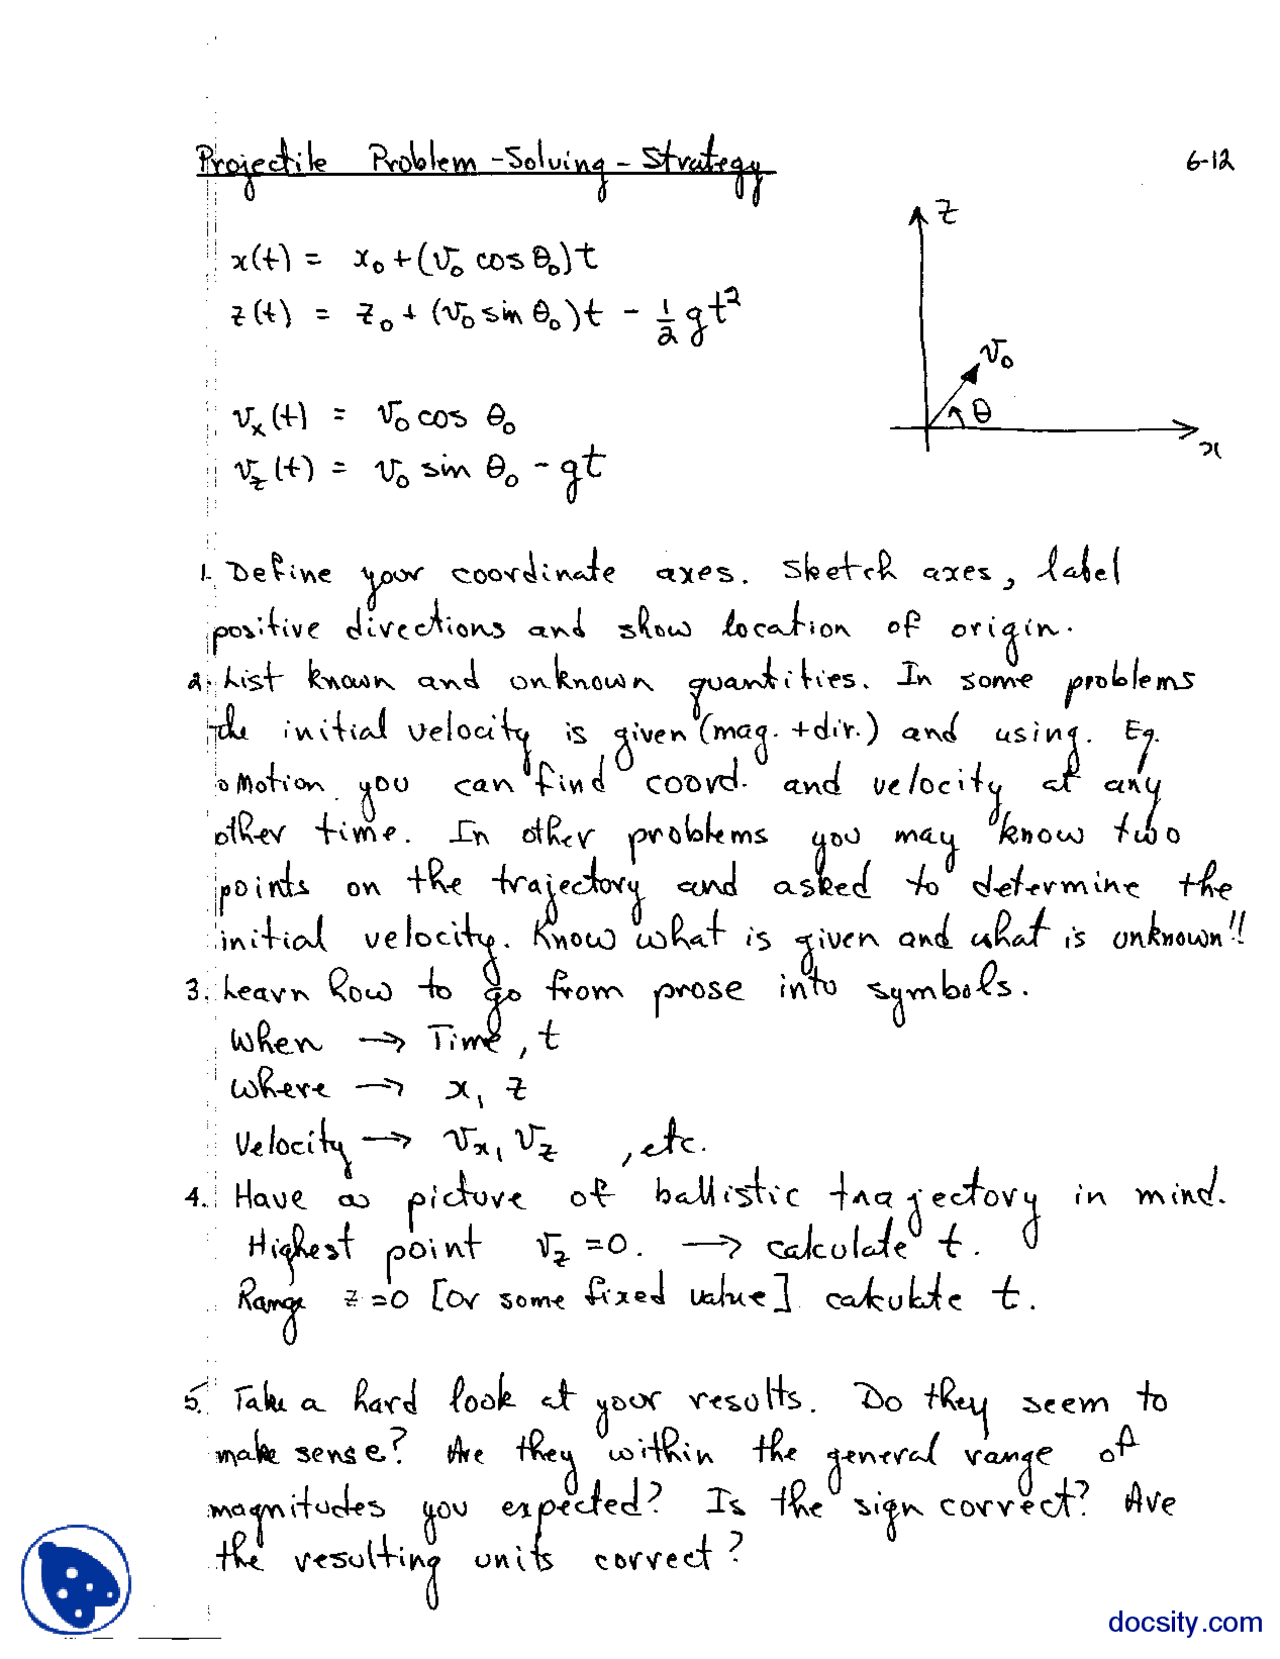 Projectile Problem-Solving-Strategy
6-12
x(t) = x₀ + (v₀ cos θ₀)t
z(t) = z₀ + (v₀ sin θ₀)t - 1/2 gt²
vₓ(t) = v₀ cos θ₀
v_z(t) = v₀ sin θ₀ - gt
z
v₀
θ
x
1. Define your coordinate axes. Sketch axes, label
positive directions and show location of origin.
2. List known and unknown quantities. In some problems
the initial velocity is given (mag. + dir.) and using. Eq.
o Motion you can find coord. and velocity at any
other time. In other problems you may know two
points on the trajectory and asked to determine the
initial velocity. Know what is given and what is unknown!!
3. Learn how to go from prose into symbols.
When → Time, t
Where → x, z
Velocity → vₓ, v_z , etc.
4. Have a picture of ballistic trajectory in mind.
Highest point v_z = 0. → calculate t.
Range z = 0 [or some fixed value] calculate t.
5. Take a hard look at your results. Do they seem to
make sense? Are they within the general range of
magnitudes you expected? Is the sign correct? Are
the resulting units correct?
docsity.com